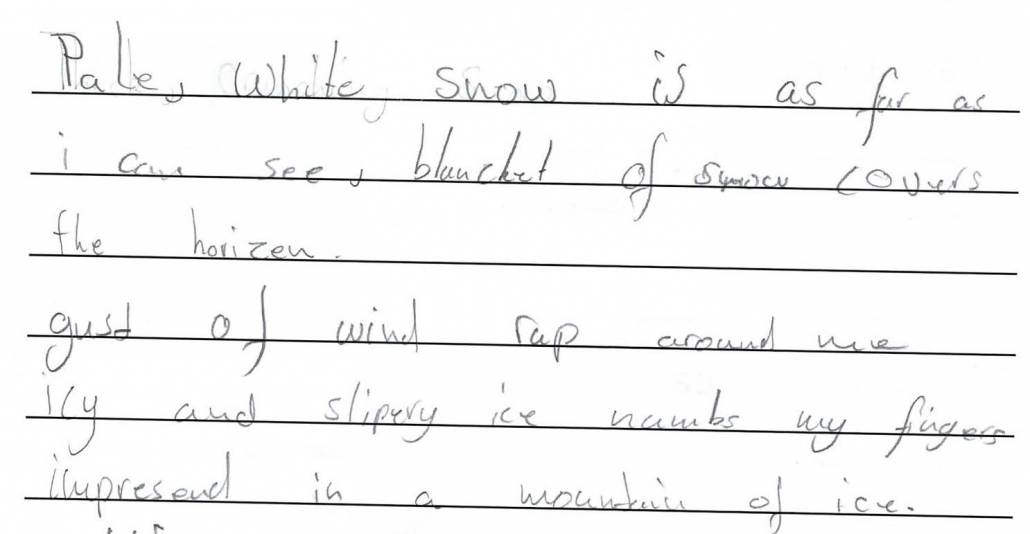 Pale, white, snow is as far as
i can see, blancket of snow covers
the horizen.
gust of wind rap around me
icy and slipery ice numbs my fingers
impresend in a mountain of ice.